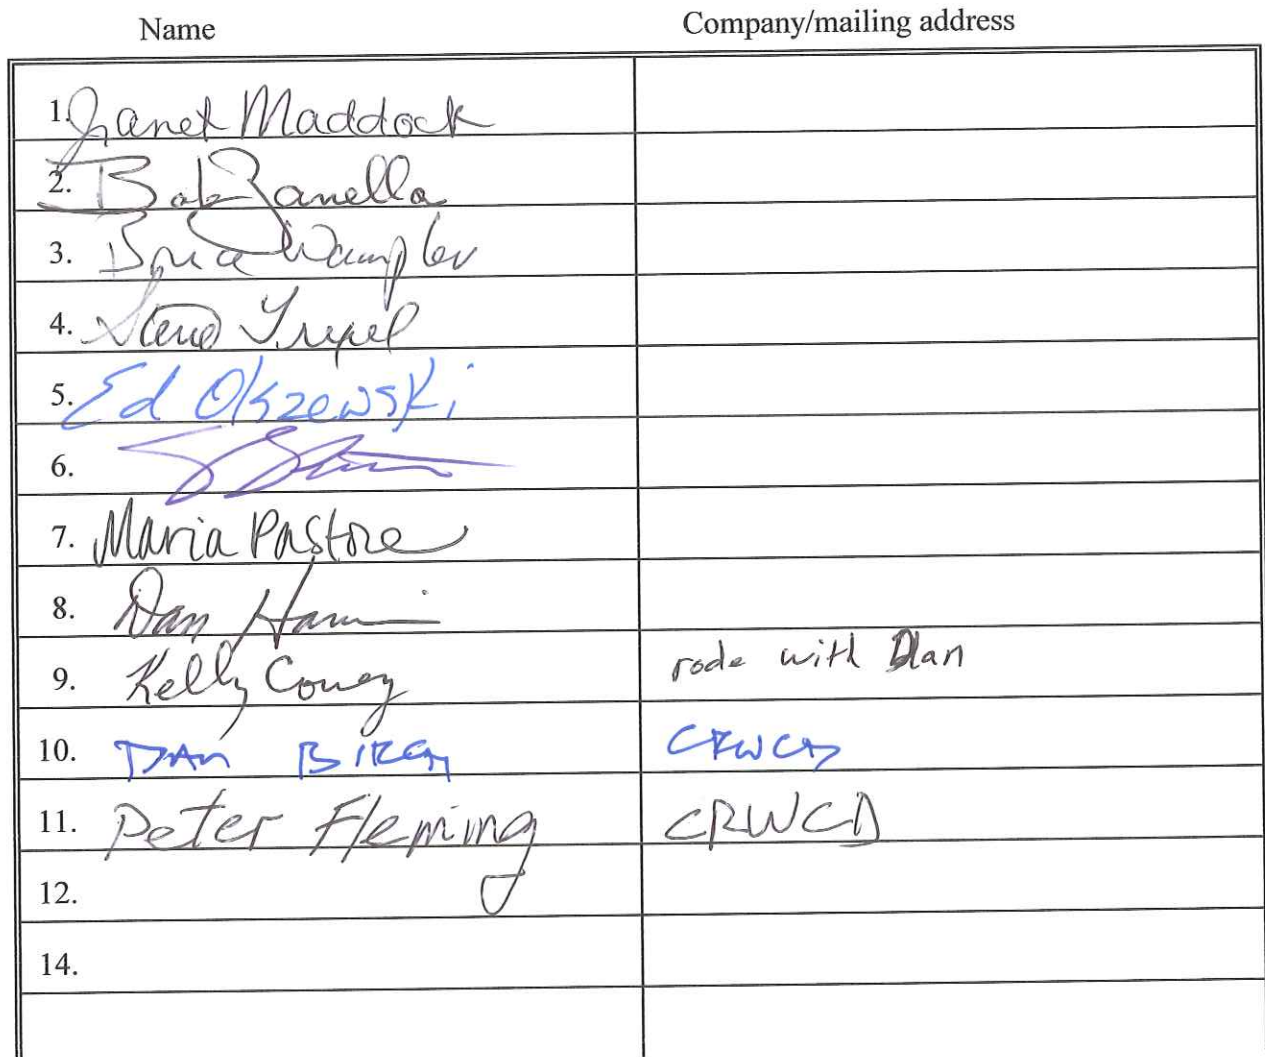 Name Company/mailing address
1. Janet Maddock
2. Bob Zanella
3. Wampler
4. Steve
5. Ed Olszewski
6.
7. Maria Pastore
8. Dan
9. Kelly rode with Dan
10. DAN BIRCH CRWCD
11. Peter Fleming CRWCD
12.
14.